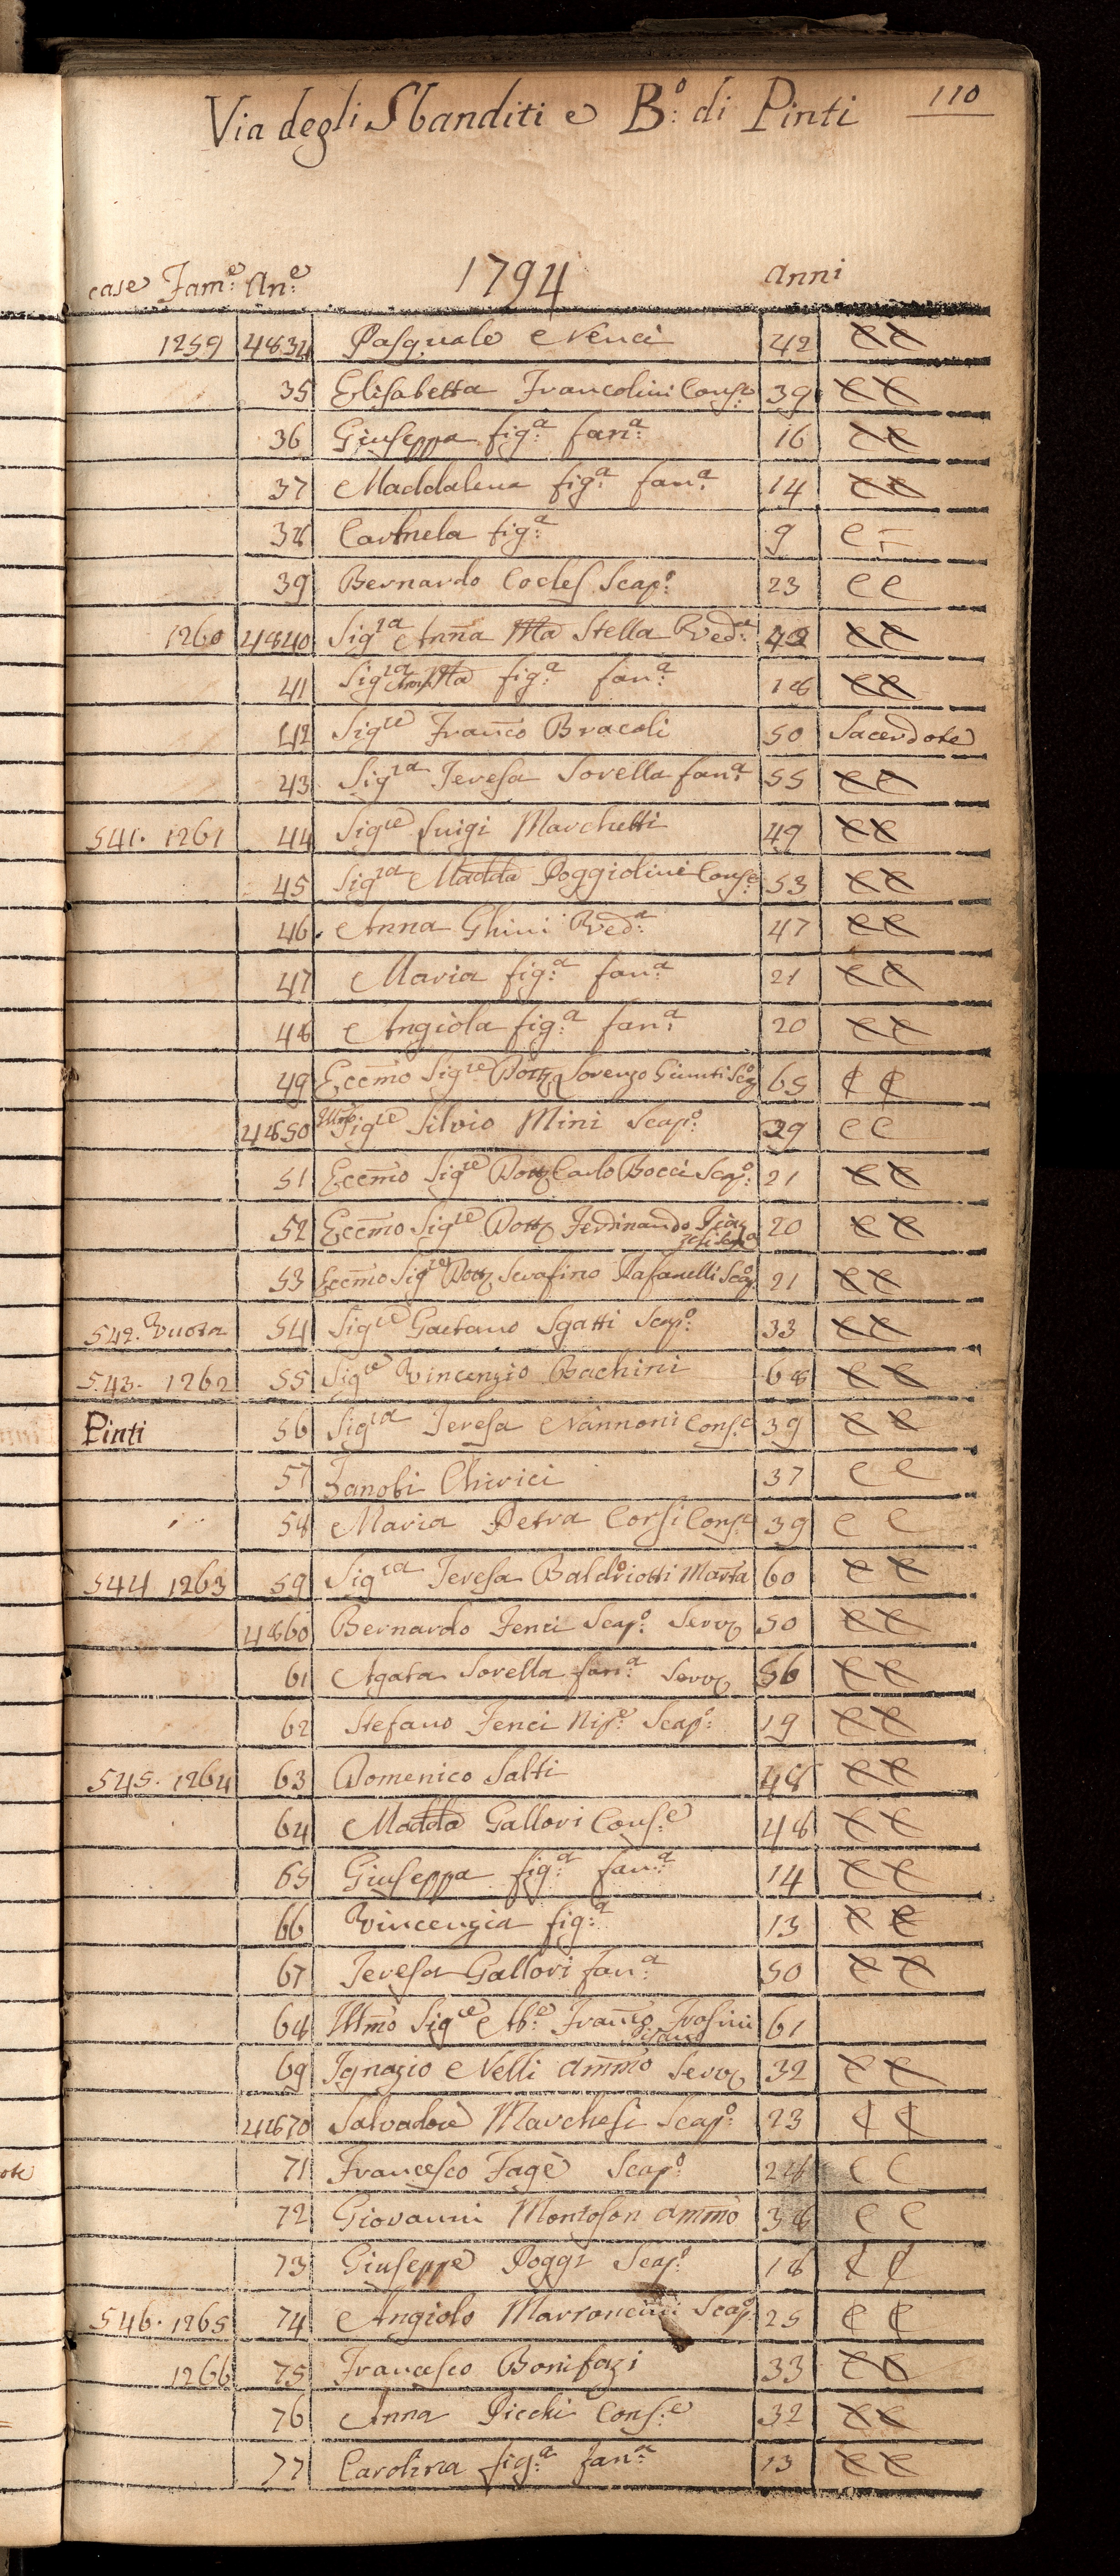 110
Via degli Sbanditi e B:º di Pinti
case Fam:e An:e 1794 anni
1259 4834 Pasquale Nenci 42 CC
35 Elisabetta Francolini Cons:e 39 CC
36 Giuseppa fig:a fan:a 16 CC
37 Maddalena fig:a fan:a 14 CC
38 Carmela fig:a 9 C -
39 Bernardo Cocles Scap:o 23 CC
1260 4840 Sig:ra Anna Ma Stella Ved:a 42 CC
41 Sig:ra Ma fig:a fan:a 18 CC
42 Sig:re Franco Bracoli 50 Sacerdote
43 Sig:ra Teresa Sorella fan:a 55 CC
541. 1261 44 Sig:re Luigi Marchetti 49 CC
45 Sig:ra Madda Poggiolini Cons:e 53 CC
46 Anna Ghini Ved:a 47 CC
47 Maria fig:a fan:a 21 CC
48 Angiola fig:a fan:a 20 CC
49 Eccmo Sig:re Dott Lorenzo Giunti Scap:o 65 CC
4850 Illmo Sig:re Silvio Mini Scap:o 29 CC
51 Eccmo Sig:re Dott Carlo Bocci Scap:o 21 CC
52 Eccmo Sig:re Dott Ferdinando 20 CC
53 Eccmo Sig:re Dott Serafino Rafanelli Scap:o 21 CC
542. Vuota 54 Sig:re Gaetano Sgatti Scap:o 33 CC
543. 1262 55 Sig:re Vincenzio Bachini 68 CC
Pinti 56 Sig:ra Teresa Nannoni Cons:e 39 CC
57 Zanobi Chirici 37 CC
58 Maria Petra Corsi Cons:e 39 CC
544 1263 59 Sig:ra Teresa Baldriotti Marta 60 CC
4860 Bernardo Fenci Scap:o Serv 50 CC
61 Agata Sorella fan:a Serv 56 CC
62 Stefano Fenci Nip:e Scap:o 19 CC
545. 1264 63 Domenico Salti 48 CC
64 Madda Gallori Cons:e 48 CC
65 Giuseppa fig:a fan:a 14 CC
66 Vincenzia fig:a 13 CC
67 Teresa Gallori fan:a 50 CC
68 Illmo Sig:re Ab:e Franco Frosini 61
69 Ignazio Nelli ammo Serv 32 CC
4870 Salvadore Marchesi Scap:o 23 CC
71 Francesco Fagè Scap:o 28 CC
72 Giovanni Montoson ammo 38 CC
73 Giuseppe Poggi Scap:o 18 CC
546. 1265 74 Angiolo Marroncini Scap:o 25 CC
1266 75 Francesco Bonifazi 33 CC
76 Anna Picchi Cons:e 32 CC
77 Carolina fig:a fan:a 13 CC